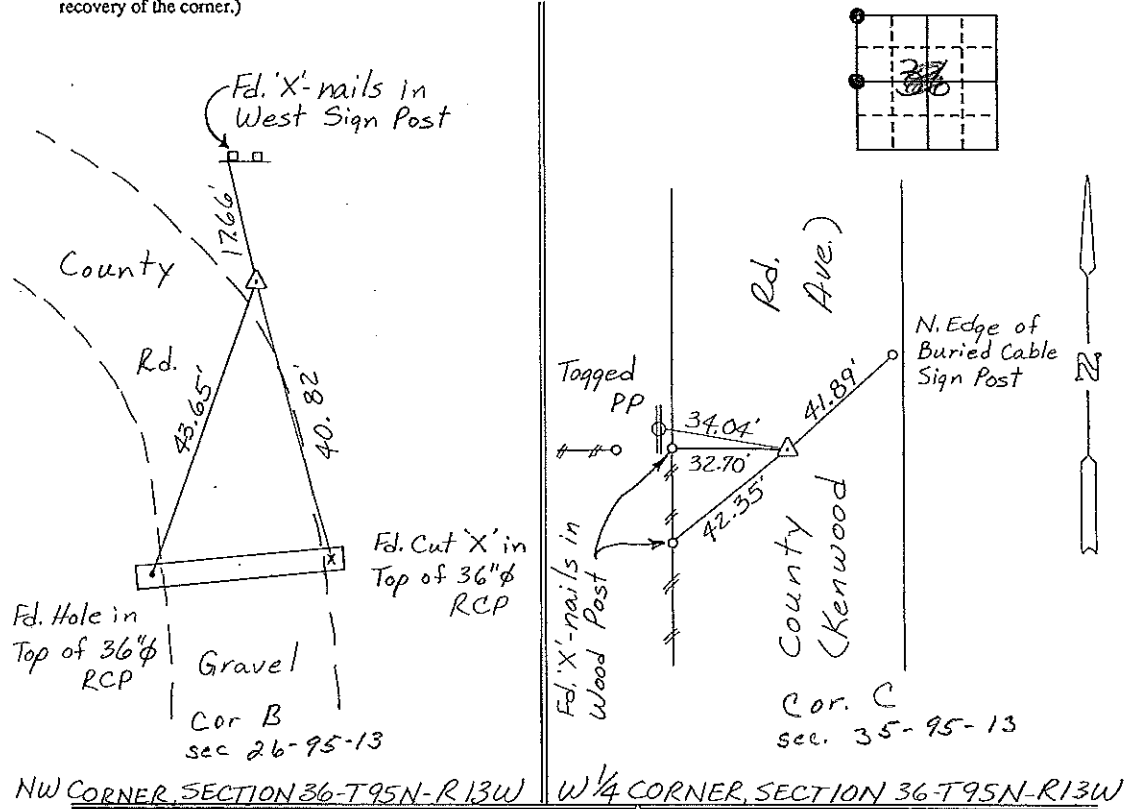 recovery of the corner.)
Fd. 'X'-nails in
West Sign Post
17.66'
County
Rd.
43.65'
40.82'
Fd. Cut 'X' in
Top of 36"φ
RCP
x
Fd. Hole in
Top of 36"φ
RCP
Gravel
Cor B
sec 26-95-13
NW CORNER, SECTION 36-T95N-R13W
36
County Rd.
(Kenwood Ave.)
N
N. Edge of
Buried Cable
Sign Post
Tagged
PP
41.89'
34.04'
32.70'
42.35'
Fd. 'X'-nails in
Wood Post
Cor. C
sec. 35-95-13
W 1/4 CORNER, SECTION 36-T95N-R13W